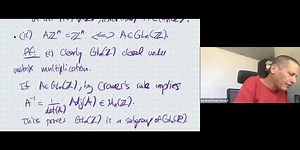 • (ii) Aℤⁿ = ℤⁿ ⟺ A∈GLn(ℤ).
Pf: (i) Clearly GLn(ℤ) closed under
matrix multiplication.
If A∈GLn(ℤ), by Cramer's rule implies
A⁻¹ = 1/det(A) Adj(A) ∈ Mn(ℤ).
This proves GLn(ℤ) is a subgroup of GLn(ℝ).